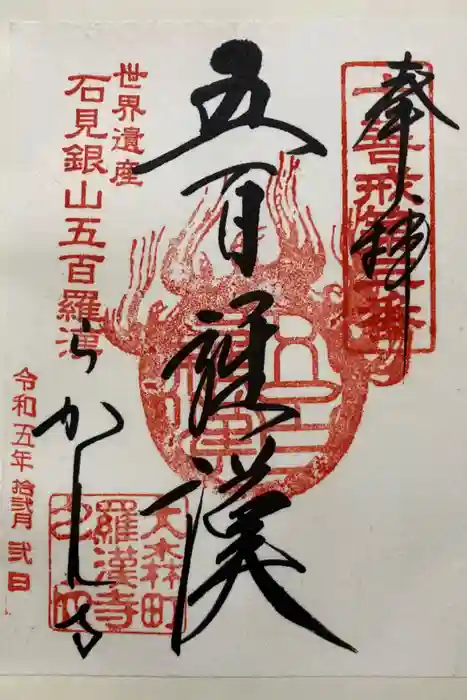 奉拝
五百羅漢
世界遺産
石見銀山五百羅漢
らかんじ
令和五年 拾弐月 弐日
大森町
羅漢寺